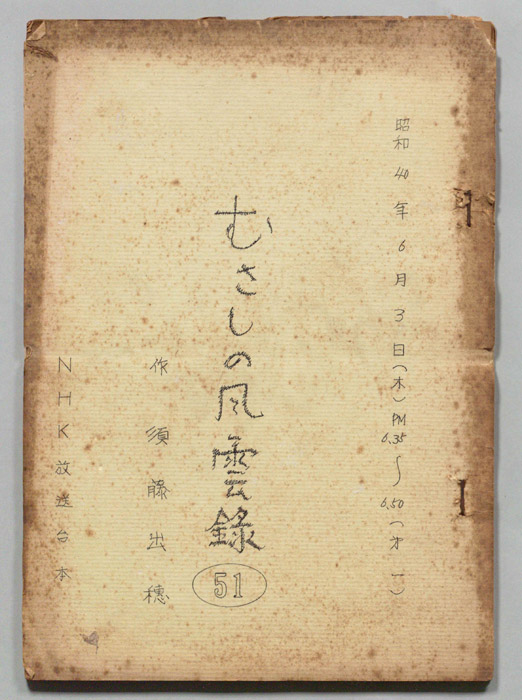 昭和40年6月3日(木)PM6.35〜6.50(才一)
むさしの風雲録
51
作 須藤出穂
NHK放送台本